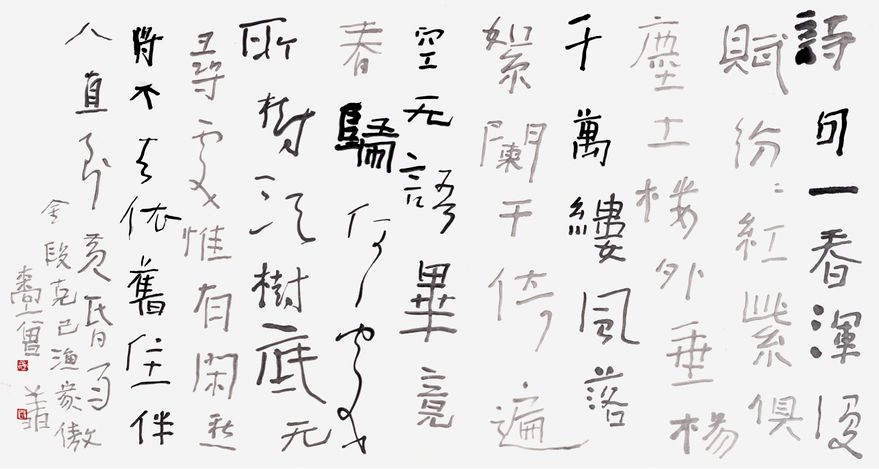 詩句一春渾漫
賦紛〻紅紫俱
塵土楼外垂楊
千萬縷風落
絮闌干倚遍
空无語畢竟
春歸何處
所樹頭樹底无
尋處惟有閑愁
將不去依舊住伴
人直到黃昏雨
金段克己漁家傲